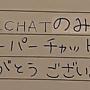 CHATのみ
ーパーチャット
がとう ござい